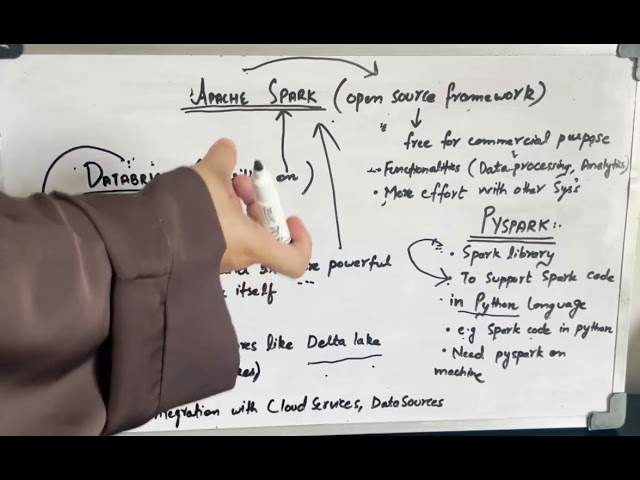 APACHE SPARK (open source framework)
free for commercial purpose
Functionalities (Data processing, Analytics)
• More effort with other Sys's
DATABRI on)
PYSPARK:.
• Spark library
To Support Spark code
in Python Language
• e.g Spark code in python
• Need pyspark on
machine
re powerful
itself
res like Delta lake
egration with Cloud Services, Data Sources